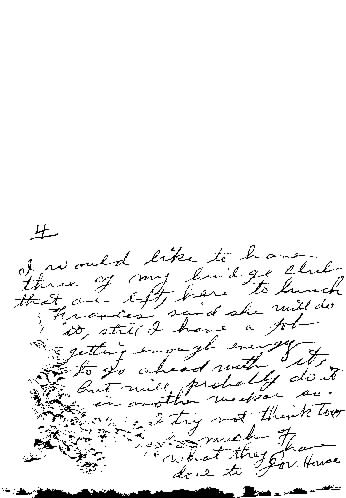 4
I would like to have
three of my bridge club
that are left, here to lunch
Frances said she will do
it, still I have a job
getting enough energy
to go ahead with it,
but will probably do it
in another week or so.
I try not think too
much of
what they have
done to Gov. House